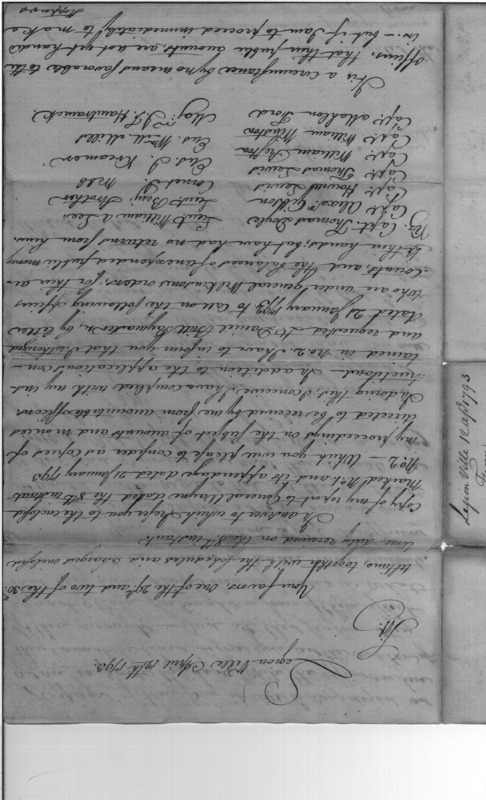 Legion Ville April 12th 1793.
Sir.
Your favors, one of the 29th and two of the 30th
ultimo, together with the schedules and charges enclosed
came duly received on the 8th instant.
In answer to which I refer you to the enclosed
Copy of my report to General Wayne dated the 8th instant
marked No. 1. and its appendage dated 21 January 1793
No. 2 — Which you will please to consider as copies of
my proceedings on the subject of accounts and monies
directed to be received by me from recruiting officers.
In doing this I conceive, I have complied with my in-
structions — In addition to the applications con-
tained in No. 2. I have to inform you that I authorized
and requested Mr. Daniel Britt Paymaster, by letter
dated 21 January 1793 to call on the following officers
who are under General Wilkinsons orders, for their ac-
counts, and the balances of unexpended public money
in their hands; but have had no returns from him.
Viz. Capt. Thomas Doyle
Capt. Alexr. Gibson
Capt. Howell Lewis
Capt. Thomas Lewis
Capt. William Preston
Capt. William Winston
Capt. Mahlon Ford
Lieut William A. Lee
Lieut Benj. Strother
Cornet Webb
Ens. J. Kreamer
Ens. Wm. Mills
Maj. J. F. Hamtramck
It is a circumstance by no means favorable to the
officers, that their public accounts, are not yet handed
in. — but if I am to proceed immediately to make a
Stoppages
Legion Ville 12 apl 1793
From